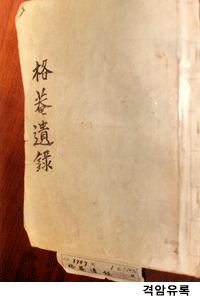 格菴遺錄
격암유록